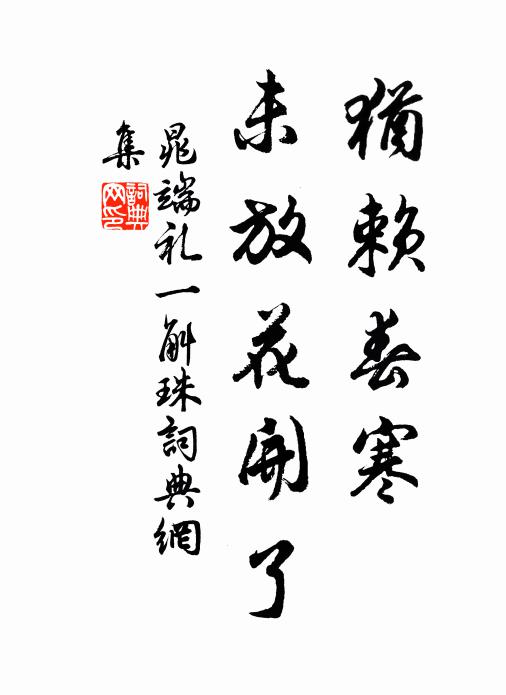 猶賴春寒
未放花開了
晁端礼一斛珠詞典網
集
詞典网印